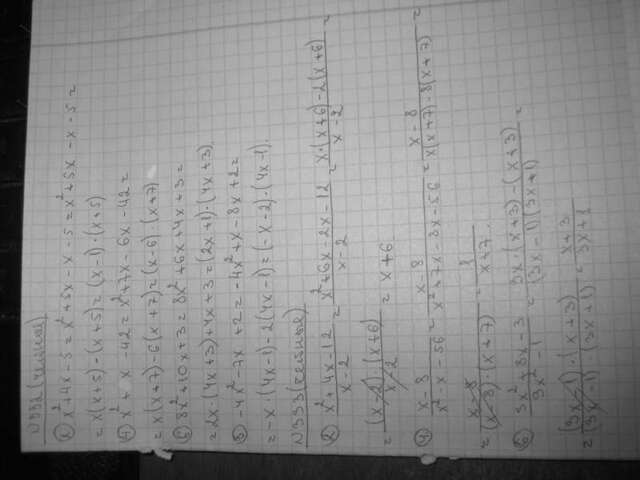 N 332 (чётные)
② x²+4x-5=x²+5x-x-5=x²+5x-x-5=
=x(x+5)-(x+5)=(x-1)·(x+5)
④ x²+x-42=x²+7x-6x-42=
=x(x+7)-6(x+7)=(x-6)·(x+7)
⑥ 8x²+10x+3=8x²+6x+4x+3=
=2x·(4x+3)+4x+3=(2x+1)·(4x+3).
⑧ -4x²-7x+2=-4x²+x-8x+2=
=-x·(4x-1)-2(4x-1)=(-x-2)·(4x-1).
N 333 (чётные)
② x²+4x-12 / x-2 = x²+6x-2x-12 / x-2 = x·(x+6)-2(x+6) / x-2 =
= (x-2)·(x+6) / x-2 = x+6
④ x-8 / x²-x-56 = x-8 / x²+7x-8x-56 = x-8 / x(x+7)-8(x+7) =
= x-8 / (x-8)·(x+7) = 1 / x+7.
⑥ 3x²+8x-3 / 9x²-1 = 3x·(x+3)-(x+3) / (3x-1)(3x+1) =
= (3x-1)·(x+3) / (3x-1)·(3x+1) = x+3 / 3x+1